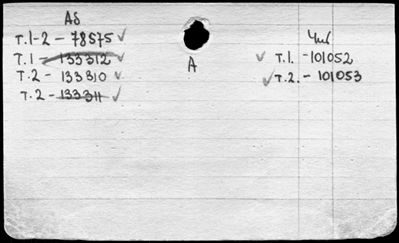 Аб
т.1-2 - 78575 ✓
т.1 - 133312 ✓
т.2 - 133310 ✓
т.2 - 133311 ✓
А
Чиб
✓ т.1. - 101052
✓ т.2. - 101053